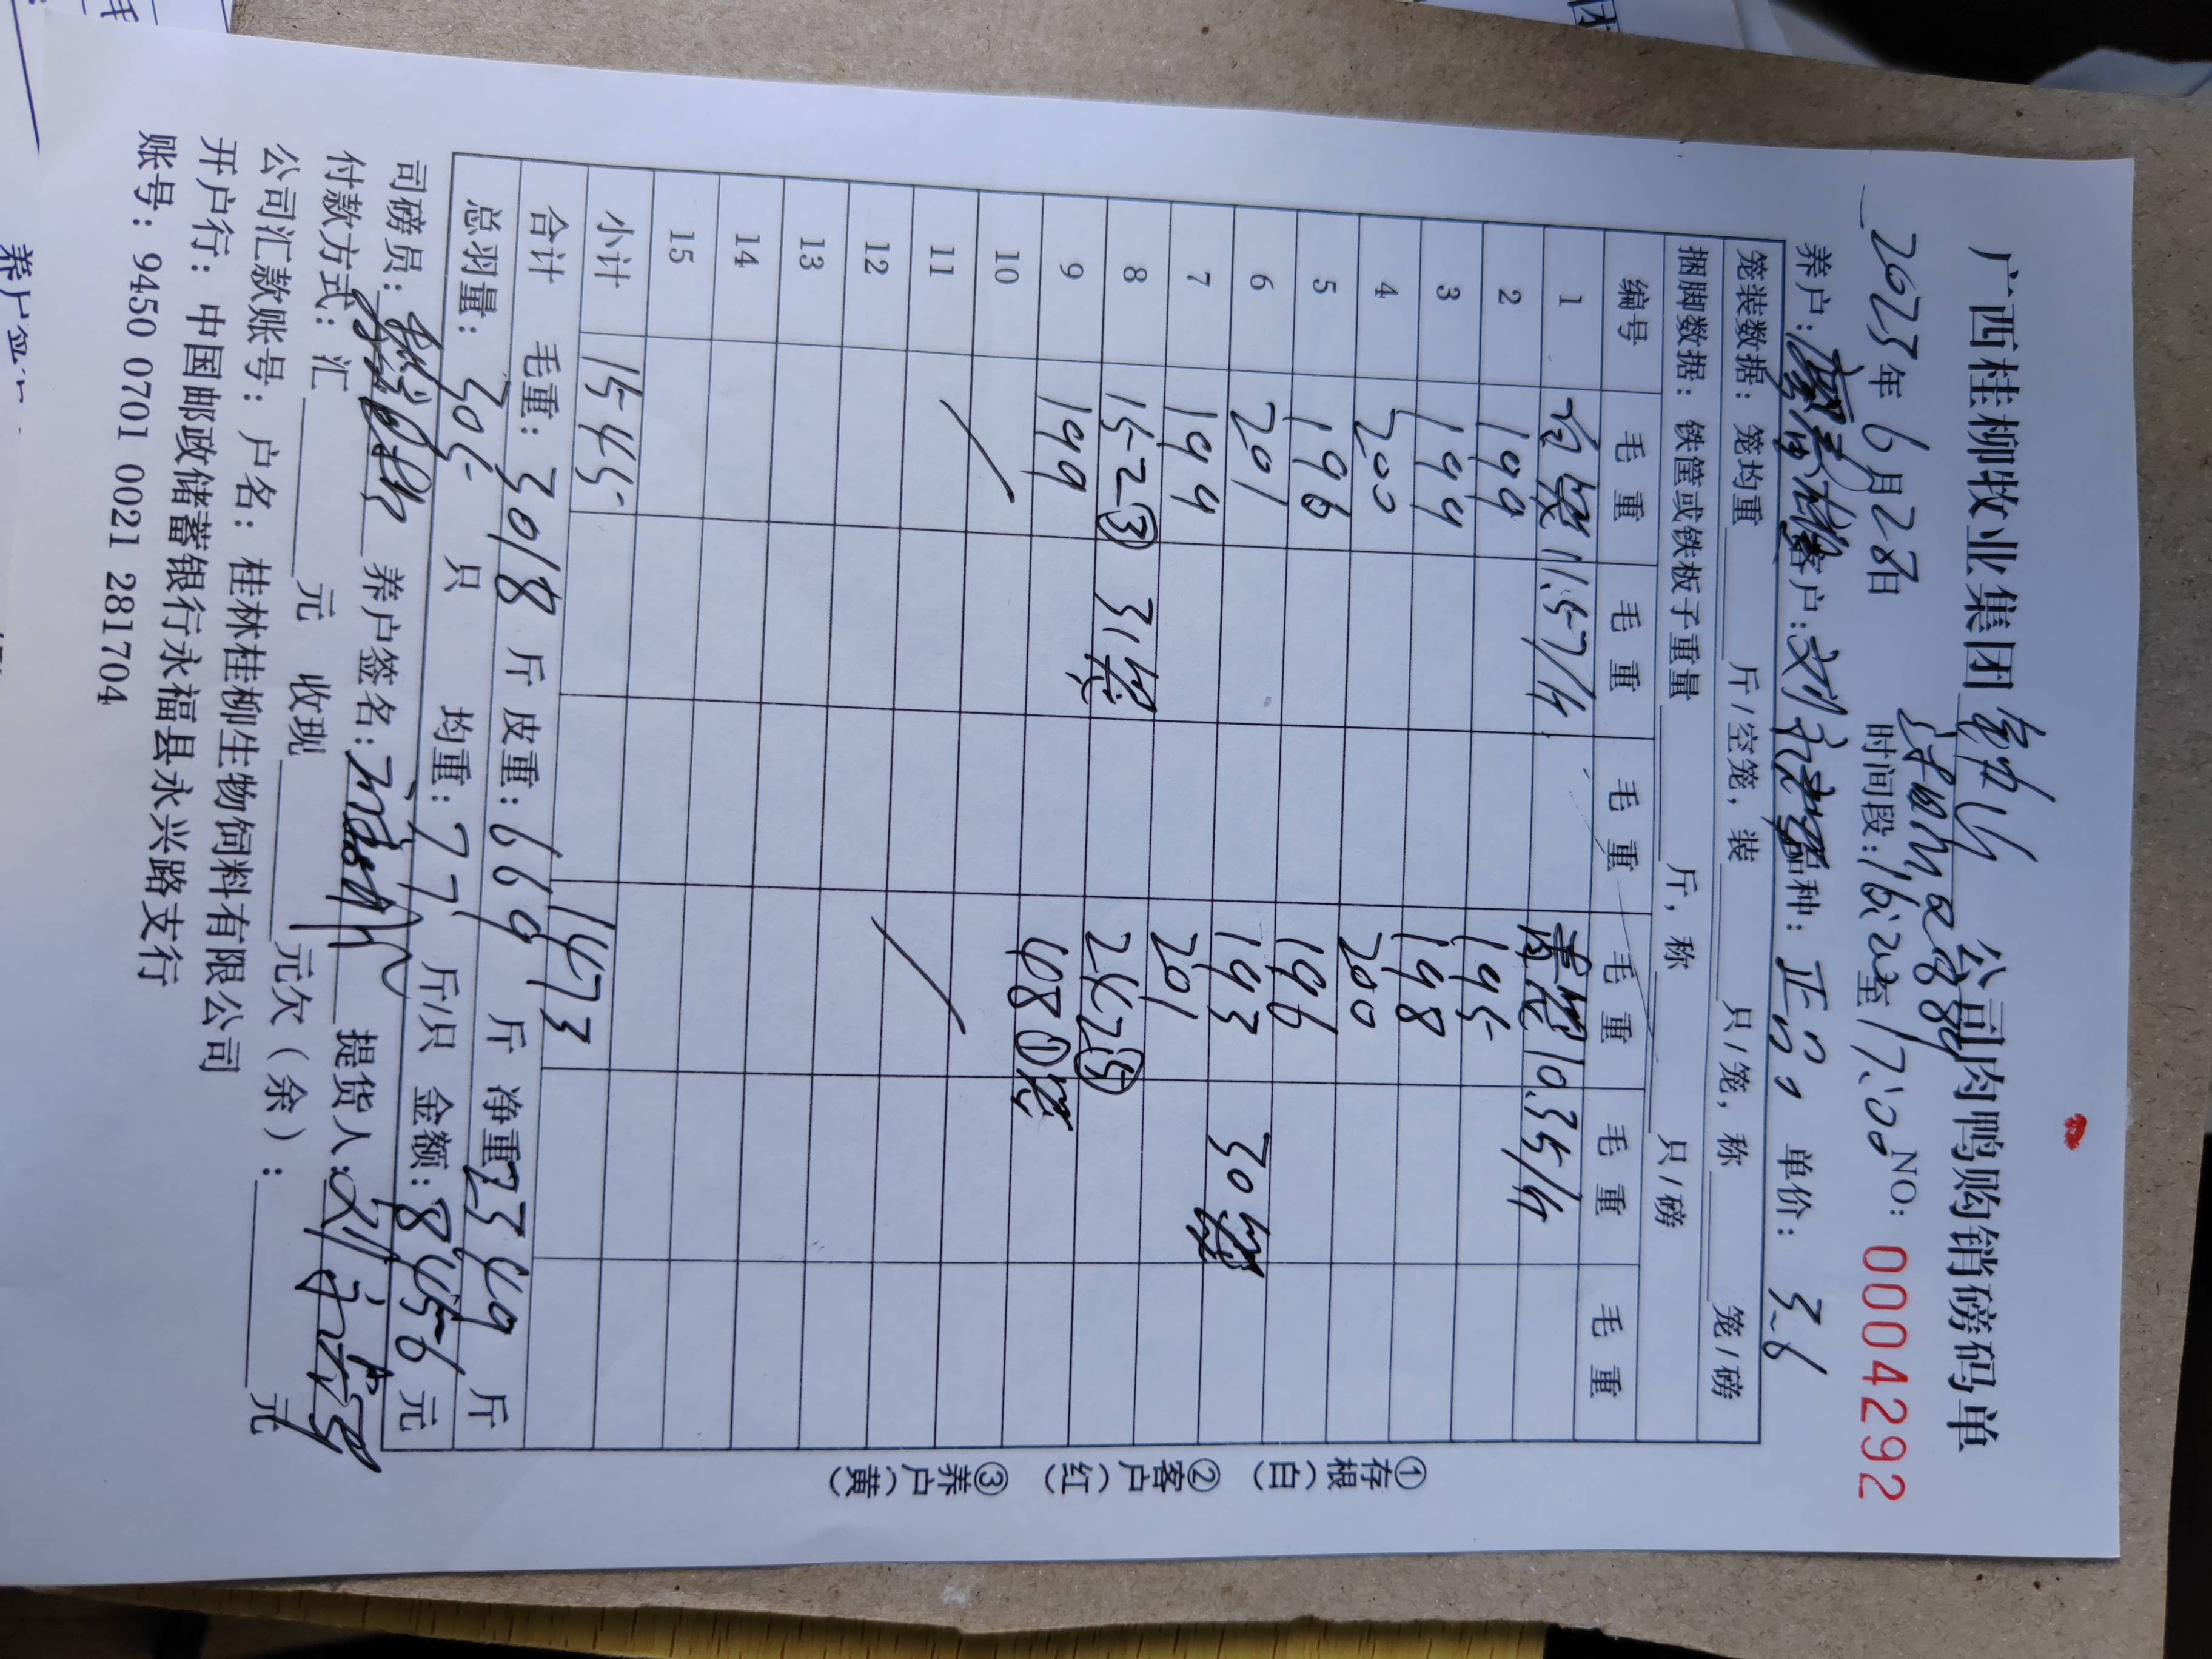 广西桂柳牧业集团 公司肉鸭购销磅码单
2023年6月28日 时间段:16:20至17:00 NO: 0004292
养户: 客户: 品种: 正品 单价: 3.6
笼装数据: 笼均重 斤/空笼, 装 只/笼, 称 笼/磅
捆脚数据: 铁筐或铁板子重量 斤, 称 只/磅
编号 毛重 毛重 毛重 毛重 毛重 毛重
1 11.57/件 10.35/件
2 199 195
3 199 198
4 200 200
5 196 196
6 201 193 30
7 199 201
8 152③ 31袋 242⑤
9 199 48①
10
11
12
13
14
15
小计 1545 1473
合计 毛重: 3018 斤 皮重: 669 斤 净重: 2349 斤
总羽量: 305 只 均重: 7.7 斤/只 金额: 8456 元
司磅员: 养户签名: 提货人:
付款方式: 汇 元 收现 元欠(余): 元
公司汇款账号: 户名: 桂林桂柳生物饲料有限公司
开户行: 中国邮政储蓄银行永福县永兴路支行
账号: 9450 0701 0021 281704
①存根(白) ②客户(红) ③养户(黄)